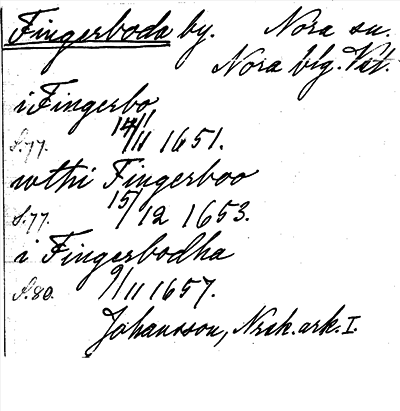 Fingerboda by. Nora sn.
Nora blg. Vstm.
i Fingerbo
S.77. 14/11 1651.
wthi Fingerboo
S.77. 15/12 1653.
i Fingerbodha
S.80. 9/11 1657.
Johansson, Nrsk. ark. I.